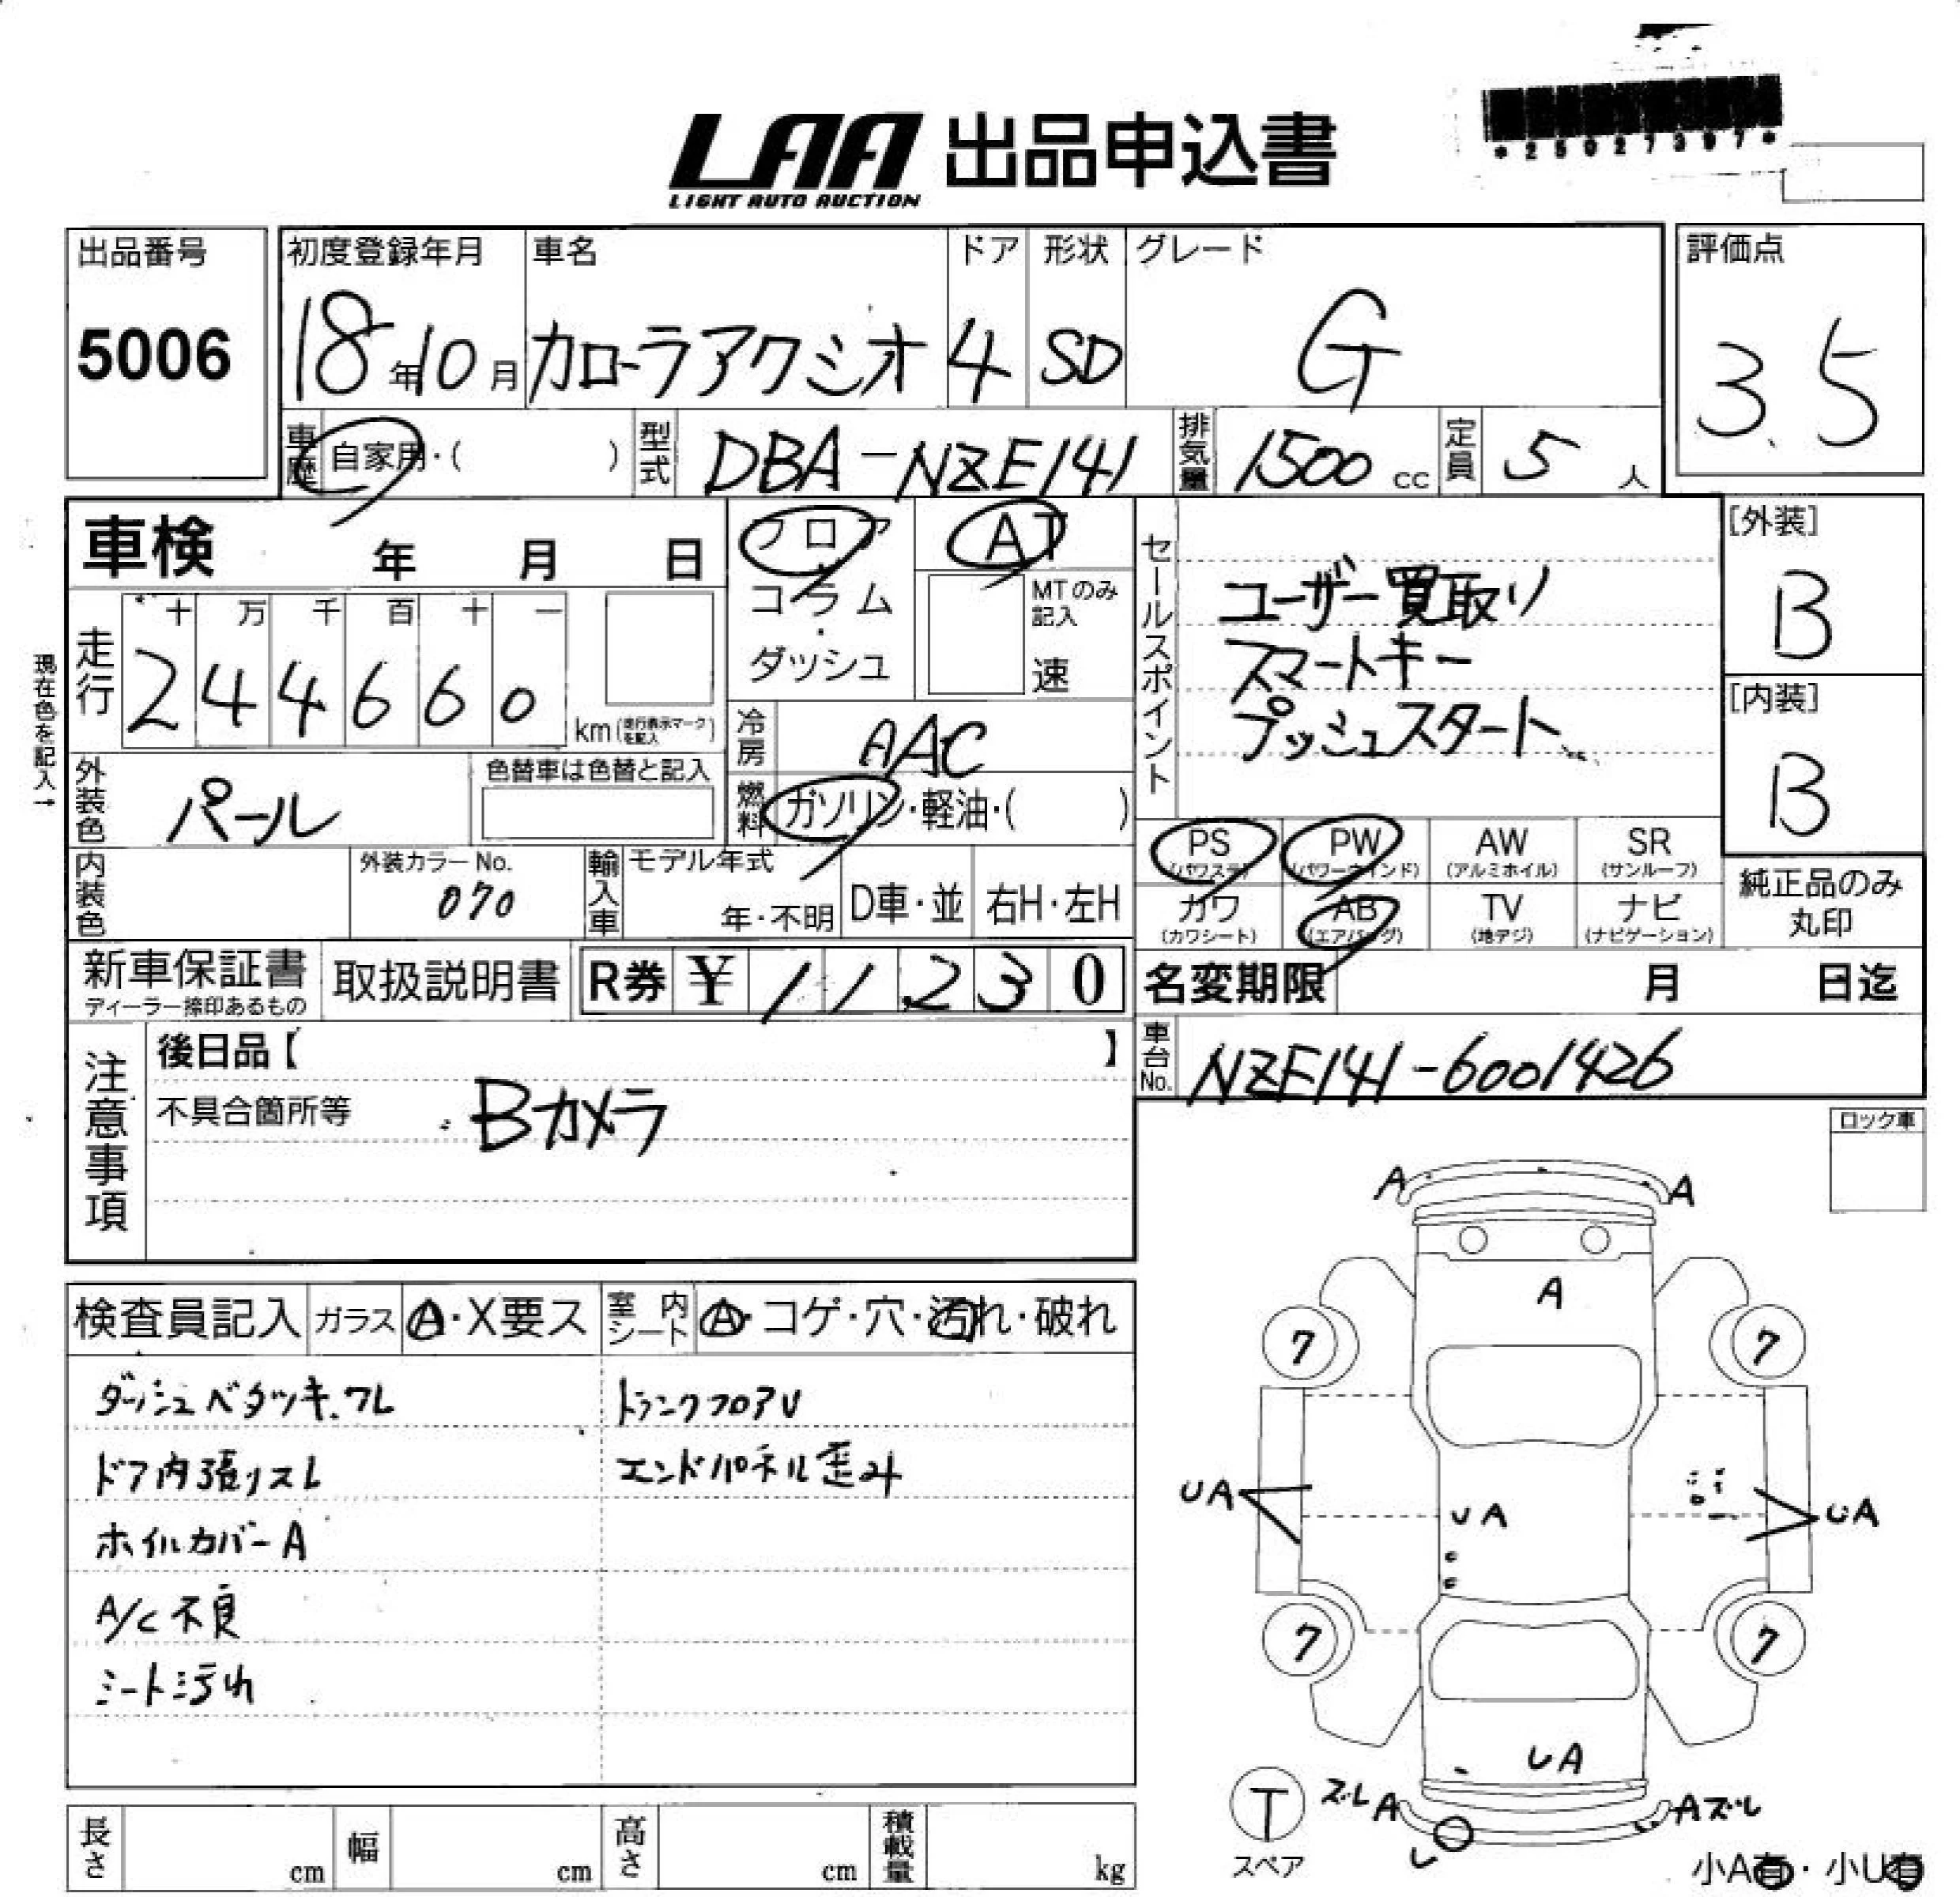 LAA 出品申込書
LIGHT AUTO AUCTION
*25027397*
出品番号
5006
初度登録年月
18年10月
車名
カローラアクシオ
ドア
4
形状
SD
グレード
G
評価点
3.5
車歴
自家用・( )
型式
DBA-NZE141
排気量
1500 cc
定員
5 人
車検 年 月 日
フロア
コラム
・
ダッシュ
AT
MTのみ
記入
速
セールスポイント
ユーザー買取り
スマートキー
プッシュスタート
[外装]
B
[内装]
B
現在色を記入→
走行
十 万 千 百 十 一
2 4 4 6 6 0
km (走行表示マークを記入)
冷房
AAC
外装色
パール
色替車は色替と記入
燃料
ガソリン・軽油・( )
PS
(パワステ)
PW
(パワーウインド)
AW
(アルミホイル)
SR
(サンルーフ)
内装色
外装カラーNo.
070
輸入車
モデル年式
年・不明
D車・並
右H・左H
カワ
(カワシート)
AB
(エアバッグ)
TV
(地デジ)
ナビ
(ナビゲーション)
純正品のみ
丸印
新車保証書
ディーラー捺印あるもの
取扱説明書
R券 ¥ 11,230
名変期限 月 日迄
注意事項
後日品【 】
不具合箇所等
Bカメラ
車台No.
NZE141-6001426
ロック車
検査員記入
ガラス
A・X要ス
室内
シート
A・コゲ・穴・汚れ・破れ
ダッシュベタツキ.ワレ
トランクフロアU
ドア内張リスレ
エンドパネル歪み
ホイルカバーA
A/C不良
シート汚れ
A A
A
7 7
UA UA UA
7 7
UA
T
スペア
ズレA
Aズレ
小A有・小U有
長さ cm
幅 cm
高さ cm
積載量 kg